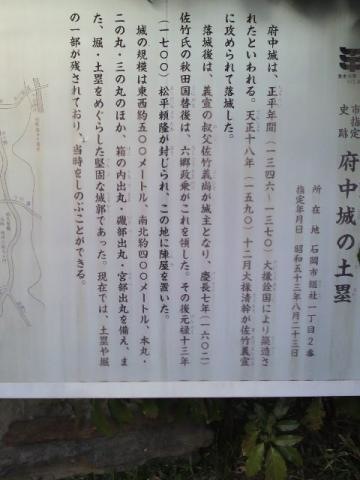 市指定
史跡
府中城の土塁
所在地 石岡市総社一丁目2番
指定年月日 昭和五十三年八月二十三日
府中城は、正平年間(一三四六~一三七〇)大掾詮国により築造さ
れたといわれる。天正十八年(一五九〇)十二月大掾清幹が佐竹義宣
に攻められて落城した。
落城後は、義宣の叔父佐竹義尚が城主となり、慶長七年(一六〇二)
佐竹氏の秋田国替後は、六郷政乗がこれを領した。その後元禄十三年
(一七〇〇)松平頼隆が封じられ、この地に陣屋を置いた。
城の規模は東西約五〇〇メートル、南北約四〇〇メートル、本丸・
二の丸・三の丸のほか、箱の内出丸・磯部出丸・宮部出丸を備え、ま
た、堀・土塁をめぐらした堅固な城郭であった。現在では、土塁や堀
の一部が残されており、当時をしのぶことができる。